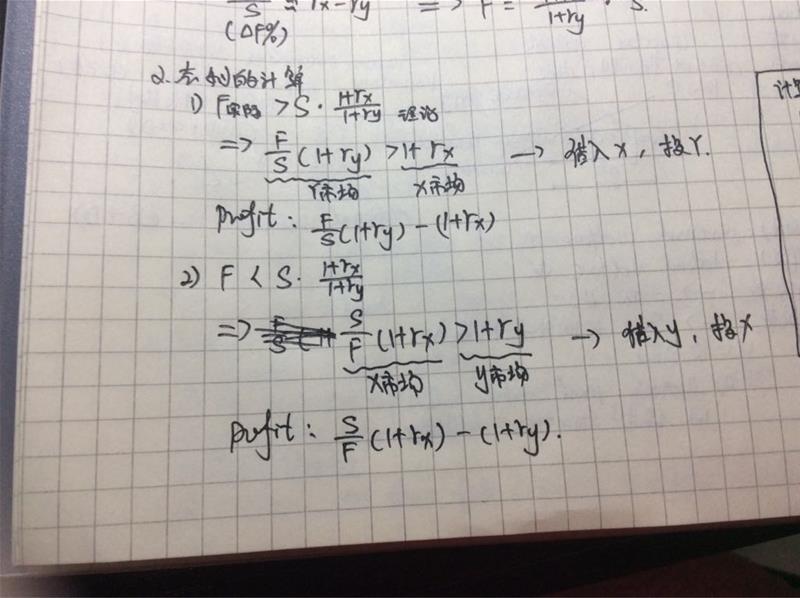 S ≈ rx-ry => F = 1+ry · S.
(ΔF%)
2. 套利的计算
1) F实际 > S · 1+rx/1+ry 理论
=> F/S (1+ry) > 1+rx → 借入x, 投Y.
Y市场 X市场
Profit: F/S(1+ry) - (1+rx)
2) F < S · 1+rx/1+ry
=> S/F (1+rx) > 1+ry → 借入y, 投X
X市场 y市场
Profit: S/F (1+rx) - (1+ry).